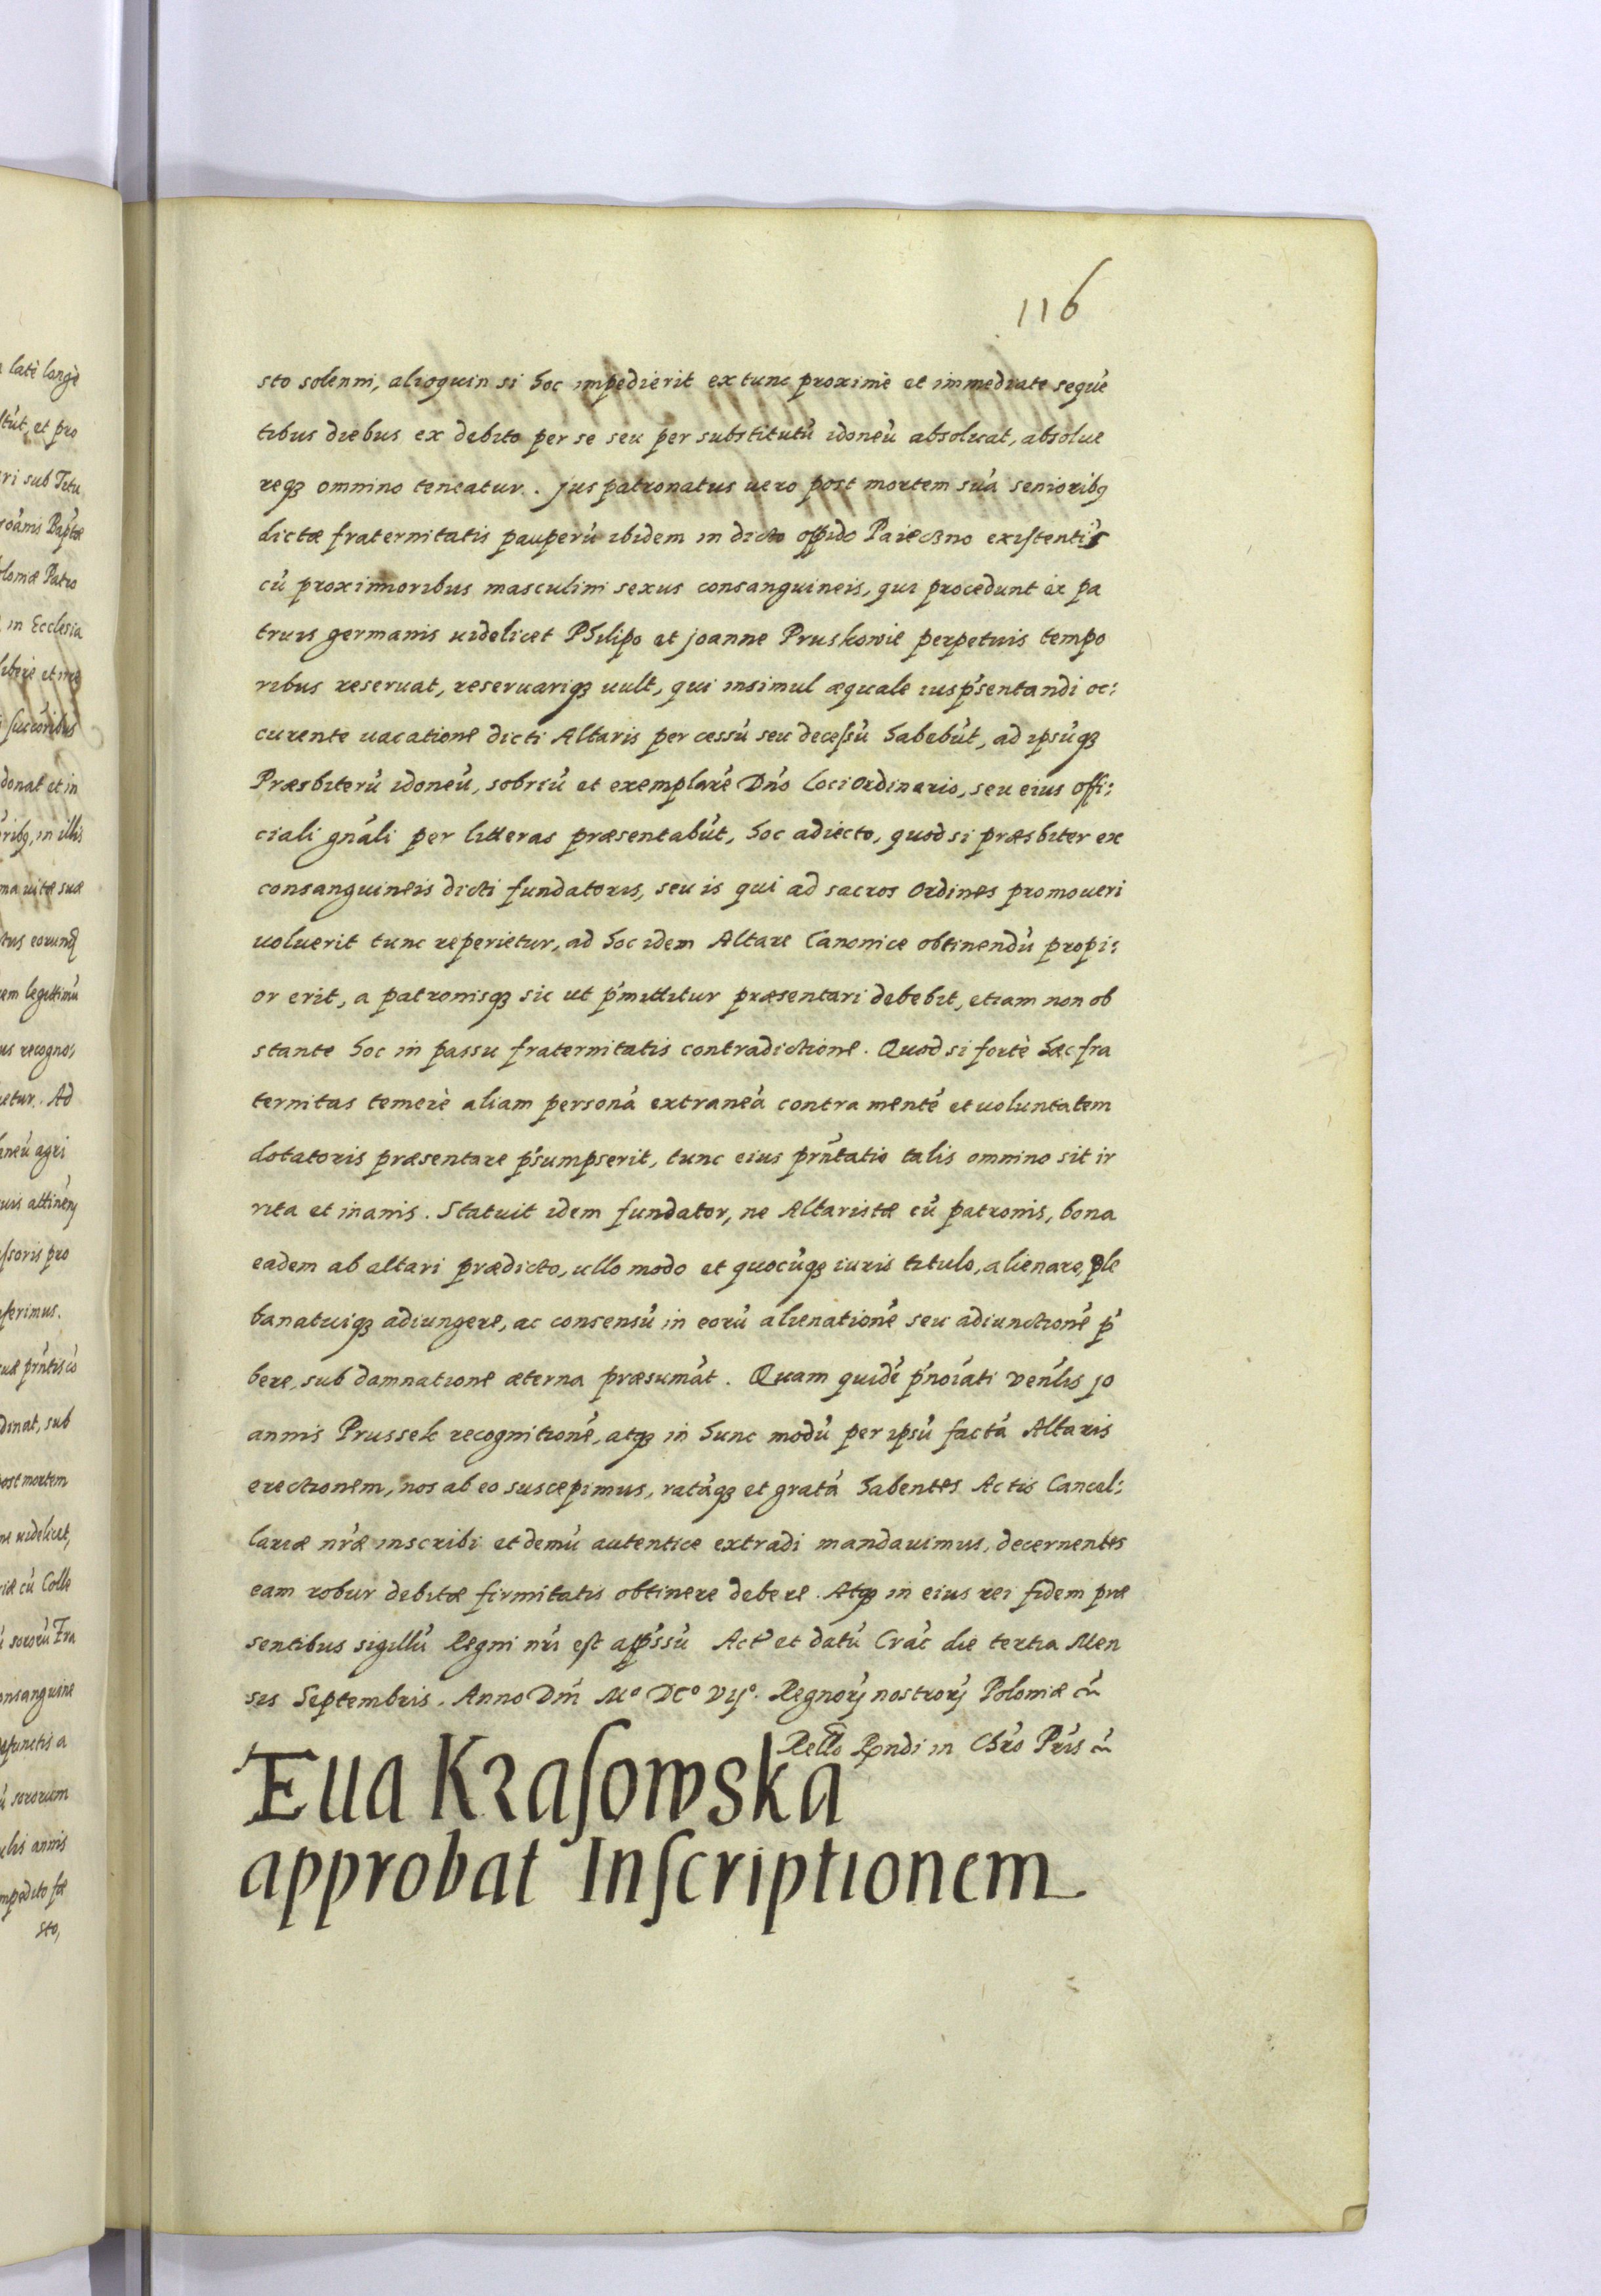 116
sto solenni, alioquin si hoc impedierit ex tunc proximè et immediate sequẽ
tibus diebus ex debito per se seu per substitutũ idoneũ absoluat, absolue
reqꝫ omnino teneatur. Jus patronatus uero post mortem suã senioribꝫ
dictæ fraternitatis pauperũ ibidem in dicto oppido Paieczno existentis
cũ proximioribus masculini sexus consanguineis, qui procedunt ex pa
truis germanis uidelicet Philipo et Joanne Pruskowie perpetuis tempo
ribus reseruat, reseruariqꝫ uult, qui insimul æquale ius p̃sentandi oc:
curente uacatione dicti Altaris per cessũ seu decessũ habebũt, ad ipsũqꝫ
Præsbiterũ idoneũ, sobriũ et exemplarẽ Dño Loci Ordinario, seu eius offi:
ciali gñali per litteras præsentabũt, hoc adiecto, quod si præsbiter ex
consanguineis dicti fundatoris, seu is qui ad sacros Ordines promoueri
uoluerit tunc reperietur, ad hoc idem Altare Canonice obtinendũ propi:
or erit, a patronisqꝫ sic ut p̃mittitur præsentari debebit, etiam non ob
stante hoc in passu fraternitatis contradictione. Quod si fortè hæc fra
ternitas temerè aliam personã extraneã contra mentẽ et uoluntatem
dotatoris præsentare p̃sumpserit, tunc eius prñtatio talis omnino sit ir
rita et inanis. Statuit idem fundator, ne Altaristæ cũ patronis, bona
eadem ab altari prædicto, ullo modo et quocũqꝫ iuris titulo, alienare, ple
banatuiqꝫ adiungere, ac consensũ in eorũ alienationẽ seu adiunctionẽ p̃
bere, sub damnatione æterna præsumãt. Quam quidẽ p̃noĩati Veñlis Jo
annis Prussek recognitionẽ, atqꝫ in hunc modũ per ipsũ factã Altaris
erectionem, nos ab eo suscepimus, ratãqꝫ et gratã habentes Actis Cancel:
lariæ nr̃æ inscribi et demũ autentice extradi mandauimus, decernentes
eam robur debitæ firmitatis obtinere debere. Atqꝫ in eius rei fidem præ
sentibus sigillũ Regni nr̃i est app̃ssũ Actũ et datũ Crac̃ die tertia Men
sis Septembris. Anno Dñi Mº DCº VIJº. Regnorꝫ nostrorꝫ Poloniæ &c̃
Rello Rndi in Chr̃o Pr̃is &c̃
Eua Kraſowska
approbat Inſcriptionem